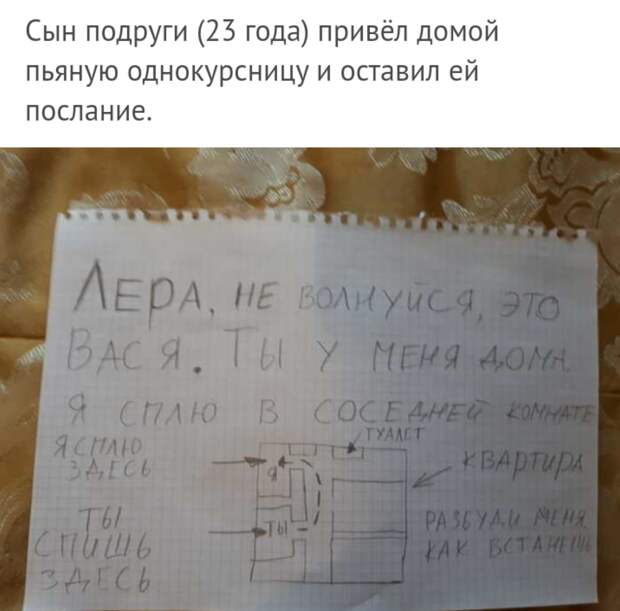 Сын подруги (23 года) привёл домой
пьяную однокурсницу и оставил ей
послание.
ЛЕРА, НЕ ВОЛНУЙСЯ, ЭТО
ВАСЯ. ТЫ У МЕНЯ ДОМА
Я СПЛЮ В СОСЕДНЕЙ КОМНАТЕ
Я СПЛЮ
ЗДЕСЬ
ТУАЛЕТ
Я
КВАРТИРА
ТЫ
СПИШЬ
ЗДЕСЬ
ТЫ
РАЗБУДИ МЕНЯ
КАК ВСТАНЕШЬ